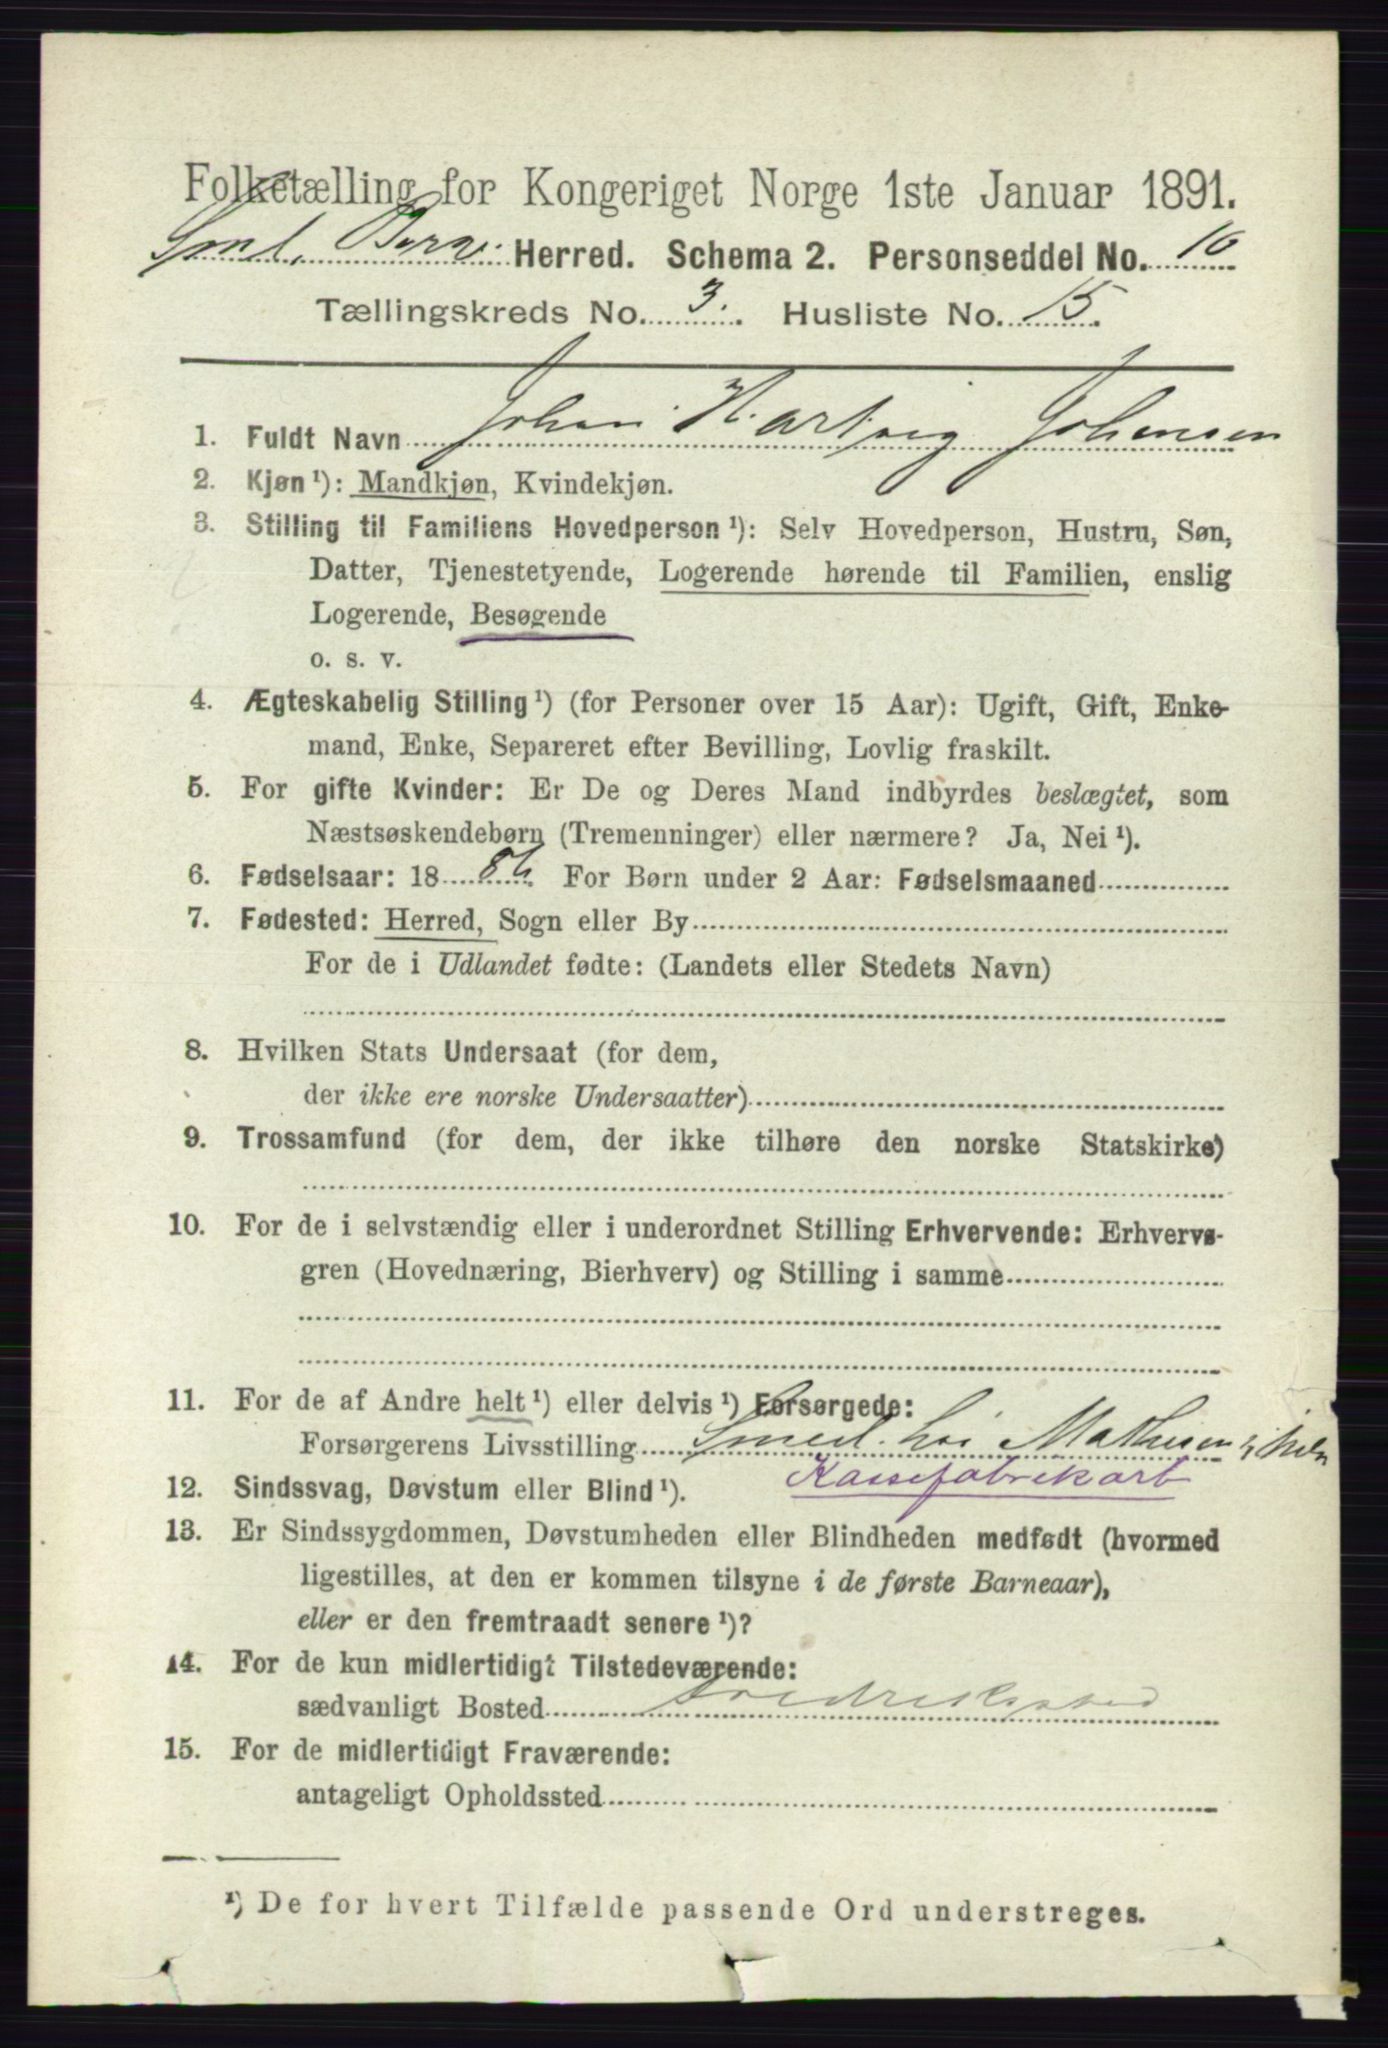 Folketælling for Kongeriget Norge 1ste Januar 1891.
Sml. Borge Herred. Schema 2. Personseddel No. 10
Tællingskreds No. 3. Husliste No. 15.
1. Fuldt Navn Johan Hartvig Johansen
2. Kjøn ¹): Mandkjøn, Kvindekjøn.
3. Stilling til Familiens Hovedperson ¹): Selv Hovedperson, Hustru, Søn,
Datter, Tjenestetyende, Logerende hørende til Familien, enslig
Logerende, Besøgende
o. s. v.
4. Ægteskabelig Stilling ¹) (for Personer over 15 Aar): Ugift, Gift, Enke-
mand, Enke, Separeret efter Bevilling, Lovlig fraskilt.
5. For gifte Kvinder: Er De og Deres Mand indbyrdes beslægtet, som
Næstsøskendebørn (Tremenninger) eller nærmere? Ja, Nei ¹).
6. Fødselsaar: 18 For Børn under 2 Aar: Fødselsmaaned
7. Fødested: Herred, Sogn eller By
For de i Udlandet fødte: (Landets eller Stedets Navn)
8. Hvilken Stats Undersaat (for dem,
der ikke ere norske Undersaatter)
9. Trossamfund (for dem, der ikke tilhøre den norske Statskirke)
10. For de i selvstændig eller i underordnet Stilling Erhvervende: Erhvervs-
gren (Hovednæring, Bierhverv) og Stilling i samme
11. For de af Andre helt ¹) eller delvis ¹) Forsørgede:
Forsørgerens Livsstilling Smed. hos Mathesen
Kassefabrikarb
12. Sindssvag, Døvstum eller Blind ¹).
13. Er Sindssygdommen, Døvstumheden eller Blindheden medfødt (hvormed
ligestilles, at den er kommen tilsyne i de første Barneaar),
eller er den fremtraadt senere ¹)?
14. For de kun midlertidigt Tilstedeværende:
sædvanligt Bosted Fredriksstad
15. For de midlertidigt Fraværende:
antageligt Opholdssted
¹) De for hvert Tilfælde passende Ord understreges.